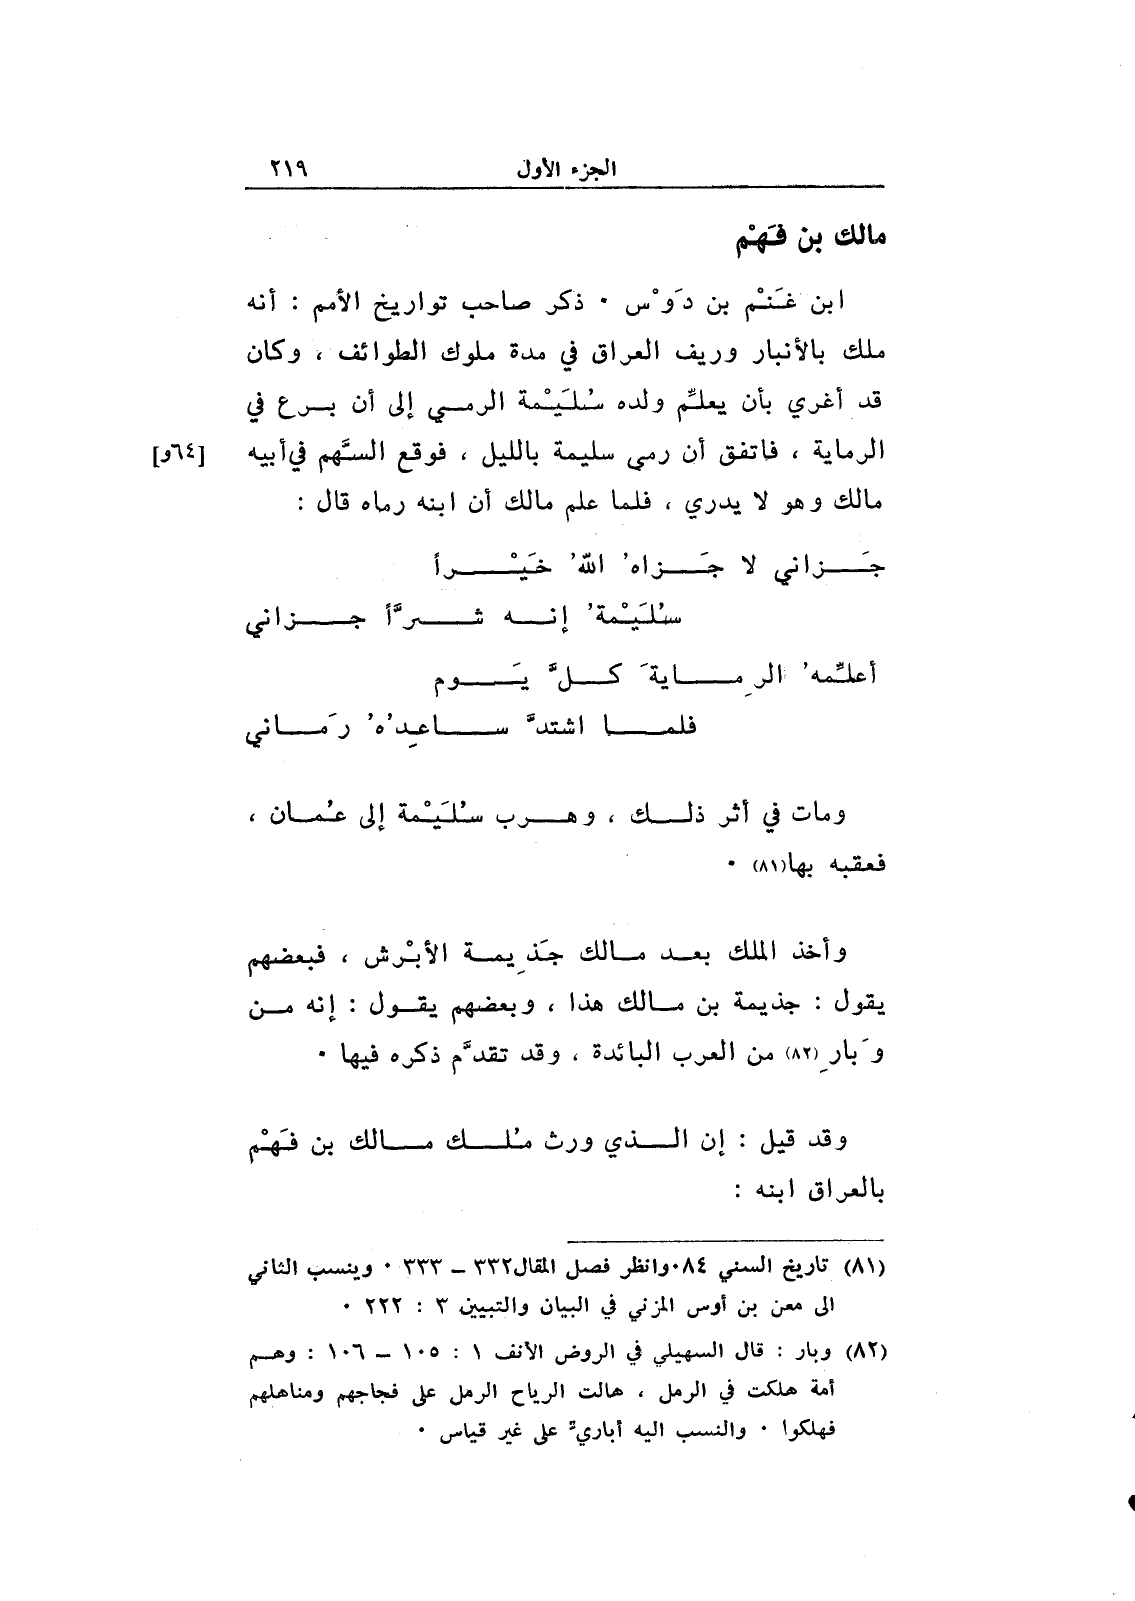 الجزء الأول ٢١٩
مالك بن فَهْم
ابن غَنْم بن دَوْس ٠ ذكر صاحب تواريخ الأمم : أنه
ملك بالأنبار وريف العراق في مدة ملوك الطوائف ، وكان
قد أغري بأن يعلِّم ولده سُلَيْمة الرمي إلى أن برع في
الرماية ، فاتفق أن رمى سليمة بالليل ، فوقع السَّهم في أبيه [٦٤و]
مالك وهو لا يدري ، فلما علم مالك أن ابنه رماه قال :
جَزاني لا جَزاهُ اللهُ خَيْراً
سُلَيْمةُ إنه شرَّاً جزاني
أعلِّمهُ الرِمايةَ كلَّ يَوم
فلما اشتدَّ ساعِدُهُ رَماني
ومات في أثر ذلك ، وهرب سُلَيْمة إلى عُمان ،
فعقبه بها(٨١) ٠
وأخذ الملك بعد مالك جَذِيمة الأبْرش ، فبعضهم
يقول : جذيمة بن مالك هذا ، وبعضهم يقول : إنه من
وَبارِ (٨٢) من العرب البائدة ، وقد تقدَّم ذكره فيها ٠
وقد قيل : إن الذي ورث مُلك مالك بن فَهْم
بالعراق ابنه :
(٨١) تاريخ السني ٨٤ ٠ وانظر فصل المقال ٣٣٢ – ٣٣٣ ٠ وينسب الثاني
الى معن بن أوس المزني في البيان والتبيين ٣ : ٢٢٢ ٠
(٨٢) وبار : قال السهيلي في الروض الأنف ١ : ١٠٥ – ١٠٦ : وهم
أمة هلكت في الرمل ، هالت الرياح الرمل على فجاجهم ومناهلهم
فهلكوا ٠ والنسب اليه أباريٌّ على غير قياس ٠